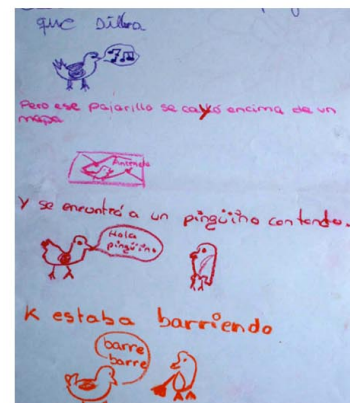 que silba
Pero ese pajarillo se cayó encima de un
mapa
Y se encontró a un pingüino contento.
Hola
pingüino
K estaba barriendo
barre
barre